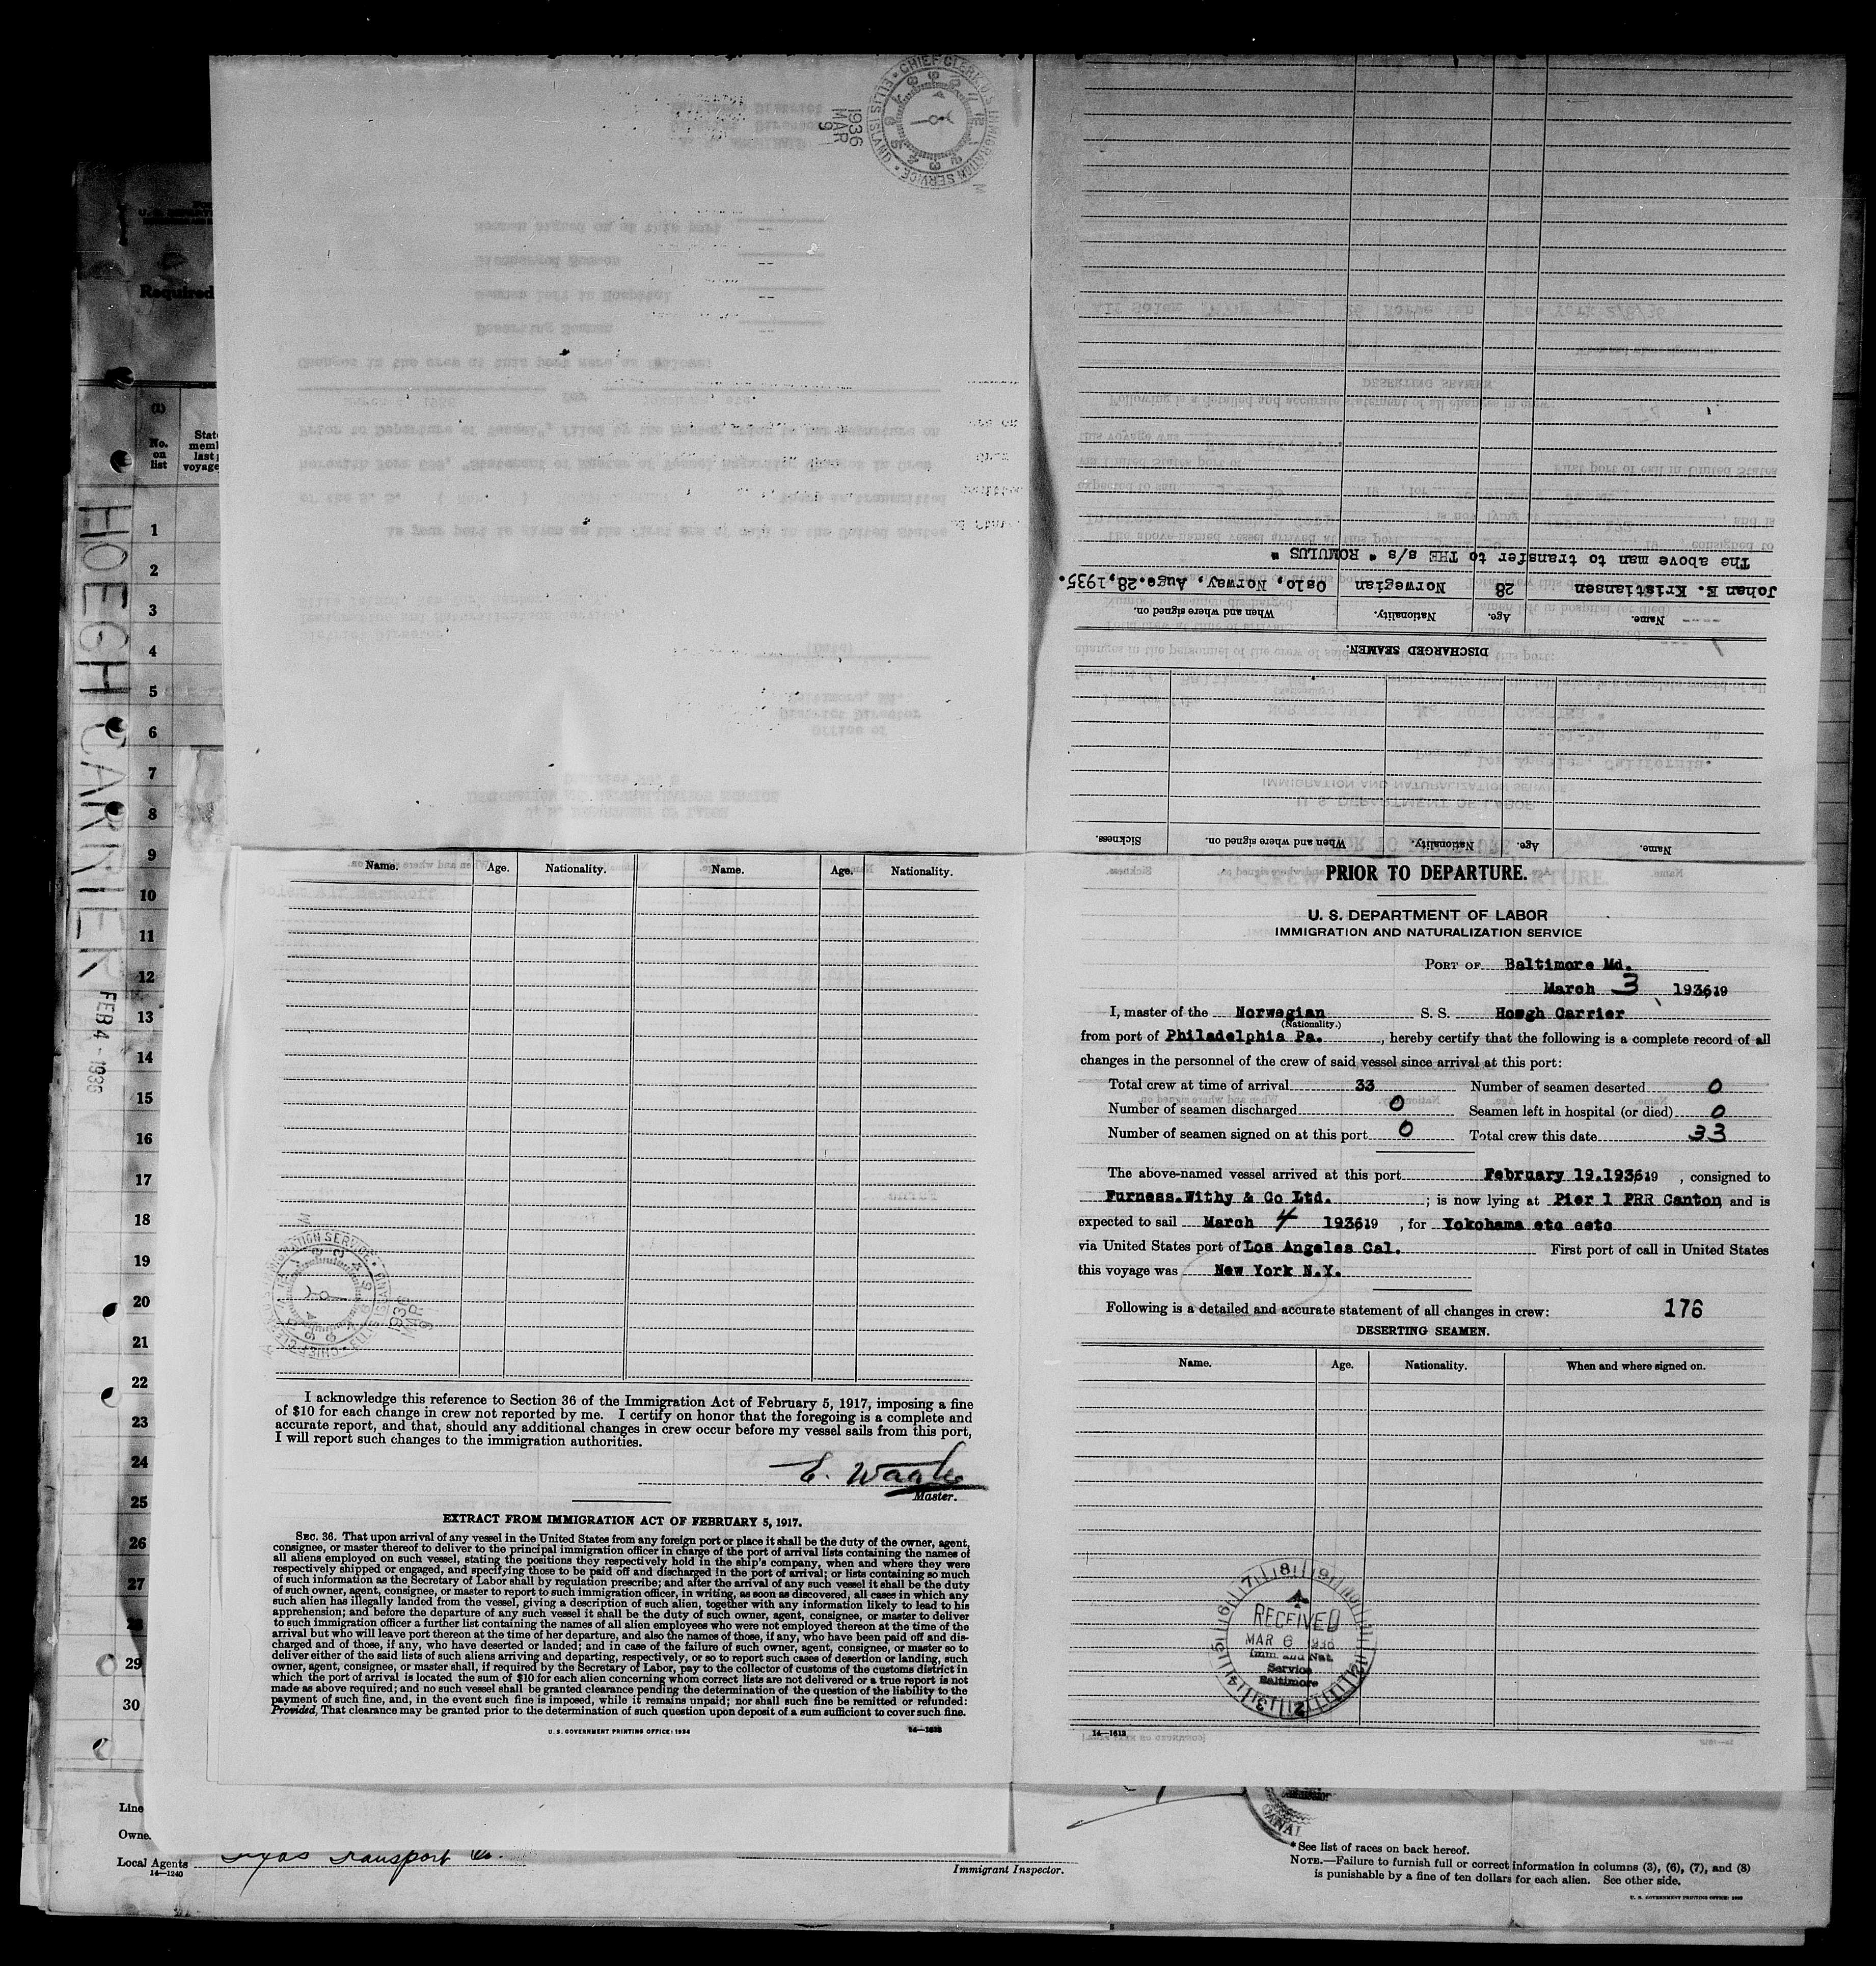 CHIEF CLERK U.S. IMMIGRATION SERVICE
ELLIS ISLAND
1936
MAR
9
Required
(1)
No.
on
list
HOEGH CARRIER
FEB 4 - 1936
1
2
3
4
5
6
7
8
9
10
11
12
13
14
15
16
17
18
19
20
21
22
23
24
25
26
27
28
29
30
Name. Age. Nationality. Name. Age. Nationality.
I acknowledge this reference to Section 36 of the Immigration Act of February 5, 1917, imposing a fine
of $10 for each change in crew not reported by me. I certify on honor that the foregoing is a complete and
accurate report, and that, should any additional changes in crew occur before my vessel sails from this port,
I will report such changes to the immigration authorities.
Master.
EXTRACT FROM IMMIGRATION ACT OF FEBRUARY 5, 1917.
SEC. 36. That upon arrival of any vessel in the United States from any foreign port or place it shall be the duty of the owner, agent,
consignee, or master thereof to deliver to the principal immigration officer in charge of the port of arrival lists containing the names of
all aliens employed on such vessel, stating the positions they respectively hold in the ship's company, when and where they were
respectively shipped or engaged, and specifying those to be paid off and discharged in the port of arrival; or lists containing so much
of such information as the Secretary of Labor shall by regulation prescribe; and after the arrival of any such vessel it shall be the duty
of such owner, agent, consignee, or master to report to such immigration officer, in writing, as soon as discovered, all cases in which any
such alien has illegally landed from the vessel, giving a description of such alien, together with any information likely to lead to his
apprehension; and before the departure of any such vessel it shall be the duty of such owner, agent, consignee, or master to deliver
to such immigration officer a further list containing the names of all alien employees who were not employed thereon at the time of the
arrival but who will leave port thereon at the time of her departure, and also the names of those, if any, who have been paid off and dis-
charged and of those, if any, who have deserted or landed; and in case of the failure of such owner, agent, consignee, or master so to
deliver either of the said lists of such aliens arriving and departing, respectively, or so to report such cases of desertion or landing, such
owner, agent, consignee, or master shall, if required by the Secretary of Labor, pay to the collector of customs of the customs district in
which the port of arrival is located the sum of $10 for each alien concerning whom correct lists are not delivered or a true report is not
made as above required; and no such vessel shall be granted clearance pending the determination of the question of the liability to the
payment of such fine, and, in the event such fine is imposed, while it remains unpaid; nor shall such fine be remitted or refunded:
Provided, That clearance may be granted prior to the determination of such question upon deposit of a sum sufficient to cover such fine.
U. S. GOVERNMENT PRINTING OFFICE: 1934 14—1613
Name. Age. Nationality. When and where signed on. Sickness.
DISCHARGED SEAMEN.
Name. Age. Nationality. When and where signed on.
Johan E. Kristiansen 28 Norwegian Oslo, Norway, Auge.28,1935.
The above man to transfer to THE s/s " ROMULUS "
PRIOR TO DEPARTURE.
U. S. DEPARTMENT OF LABOR
IMMIGRATION AND NATURALIZATION SERVICE
PORT OF Baltimore Md.
March 3 1936 19
I, master of the Norwegian S. S. Hoegh Carrier
(Nationality.)
from port of Philadelphia Pa. , hereby certify that the following is a complete record of all
changes in the personnel of the crew of said vessel since arrival at this port:
Total crew at time of arrival 33 Number of seamen deserted 0
Number of seamen discharged 0 Seamen left in hospital (or died) 0
Number of seamen signed on at this port 0 Total crew this date 33
The above-named vessel arrived at this port February 19.1936 19 , consigned to
Furness.Withy & Co Ltd. ; is now lying at Pier 1 PRR Canton and is
expected to sail March 4 1936 19 , for Yokohama etc eetc
via United States port of Los Angeles Cal. First port of call in United States
this voyage was New York N.Y.
Following is a detailed and accurate statement of all changes in crew: 176
DESERTING SEAMEN.
Name. Age. Nationality. When and where signed on.
RECEIVED
MAR 6 1936
Imm. and Nat.
Service
Baltimore
14—1613
Line
Owne
Local Agents Texas Transport Co.
14—1240
Immigrant Inspector.
*See list of races on back hereof.
NOTE.—Failure to furnish full or correct information in columns (3), (6), (7), and (8)
is punishable by a fine of ten dollars for each alien. See other side.
U. S. GOVERNMENT PRINTING OFFICE: